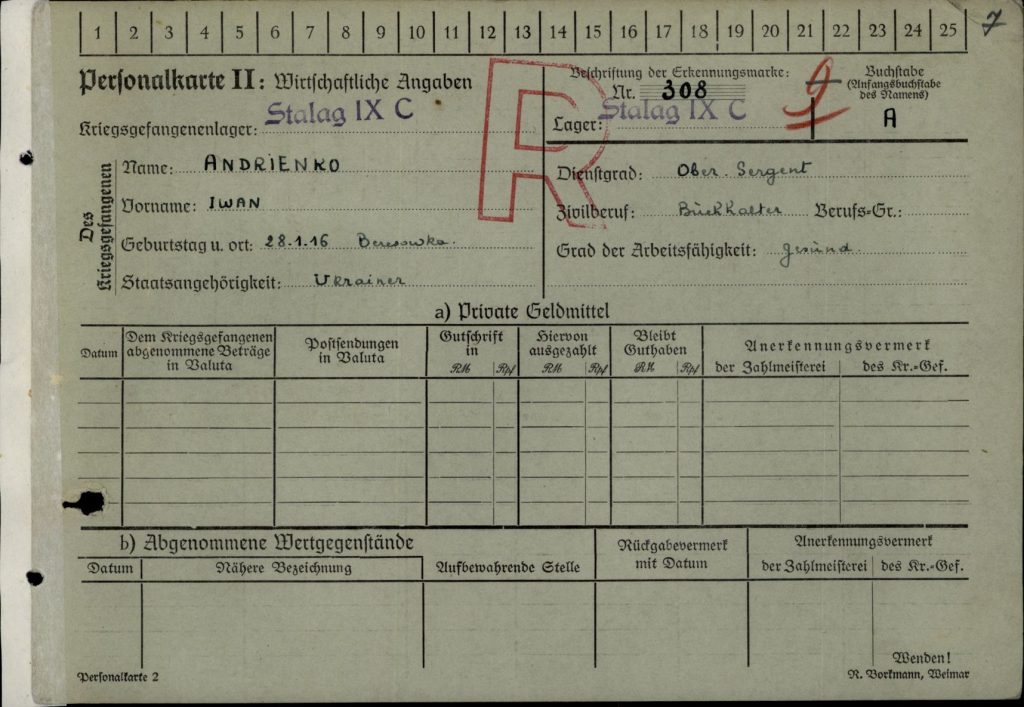 1 2 3 4 5 6 7 8 9 10 11 12 13 14 15 16 17 18 19 20 21 22 23 24 25
7
Personalkarte II: Wirtschaftliche Angaben
R
Beschriftung der Erkennungsmarke:
Nr. 308
Buchstabe
(Anfangsbuchstabe
des Namens)
Kriegsgefangenenlager: Stalag IX C
Lager: Stalag IX C
A
Des
Kriegsgefangenen
Name: ANDRIENKO
Vorname: IWAN
Geburtstag u. ort: 28.1.16 Beresowka.
Staatsangehörigkeit: Ukrainer
Dienstgrad: Ober. Sergent
Zivilberuf: Buckhalter Berufs-Gr.:
Grad der Arbeitsfähigkeit: gesund.
a) Private Geldmittel
Datum
Dem Kriegsgefangenen
abgenommene Beträge
in Valuta
Postsendungen
in Valuta
Gutschrift
in
RM Rpf
Hiervon
ausgezahlt
RM Rpf
Bleibt
Guthaben
RM Rpf
Anerkennungsvermerk
der Zahlmeisterei des Kr.-Gef.
b) Abgenommene Wertgegenstände
Datum Nähere Bezeichnung Aufbewahrende Stelle
Rückgabevermerk
mit Datum
Anerkennungsvermerk
der Zahlmeisterei des Kr.-Gef.
Wenden!
Personalkarte 2
R. Borkmann, Weimar